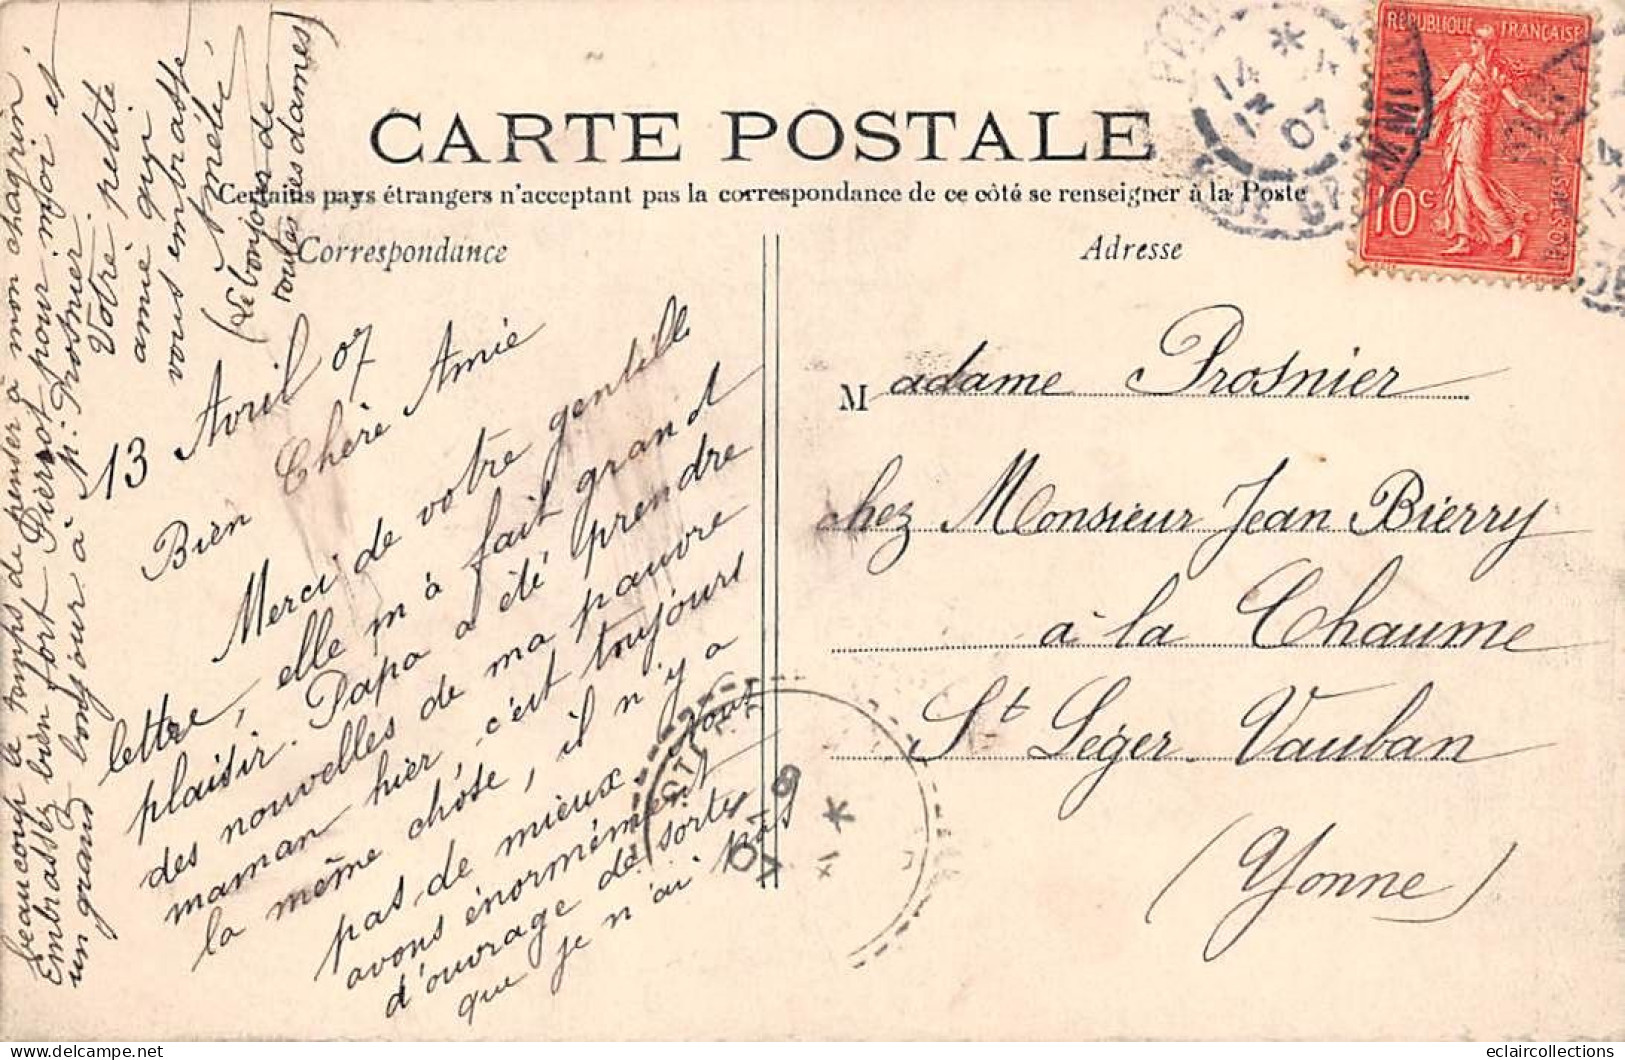 CARTE POSTALE
Certains pays étrangers n'acceptant pas la correspondance de ce côté se renseigner à la Poste
Correspondance
Adresse
RÉPUBLIQUE FRANÇAISE
10c
14 * 4
13 07
13 Avril 07
Bien Chère Amie
Merci de votre gentille
lettre, elle m'à fait grand
plaisir. Papa a été prendre
des nouvelles de ma pauvre
maman hier, c'est toujours
la même chose, il n'y a
pas de mieux. Nous
avons énormément
d'ouvrage de sorte
que je n'ai pas
beaucoup le temps de penser à mon chagrin.
Embrassez bien fort Pierrot pour moi et
un grand bonjour à Mr. Prosnier.
Votre petite
amie qui
vous embrasse
Amélie
(Le bonjour de
toutes ces dames)
Madame Prosnier
chez Monsieur Jean Bierry
à la Chaume
St Léger. Vauban
(Yonne)
eclaircollections